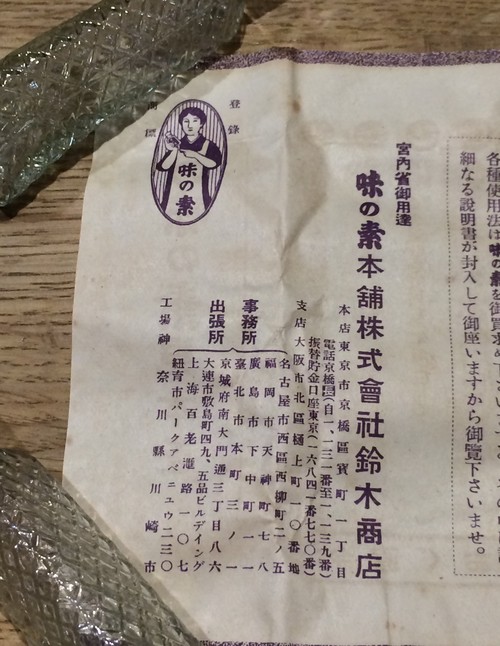 各種使用法は味の素を御買求め下さい
細なる説明書が封入して御座いますから御覽下さいませ。
宮內省御用達
味の素本舗株式會社鈴木商店
本店 東京市京橋區寶町一丁目
電話京橋(自一、一三一番至一、一三九番)
振替貯金口座東京(一六八四一番七七〇番)
支店 大阪市北區樋上町一〇番地
事務所
出張所
名古屋市西區西柳町二ノ五
福岡市天神町七八
廣島市下中町一一
臺北市本町三ノ一
京城府南大門通三丁目八六
大連市敷島町四九、五品ビルデイング
上海百老滙路一〇七
紐育市パークアベニユウ二三〇
工場 神奈川縣川崎市
登錄
商標
味の素